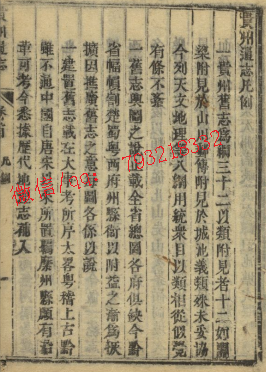 貴州通志凡例
一貴州舊志為綱三十二以類附見者十二如關
梁附見於山川寺觀附見於城池義類殊未妥協
今列天文地理等大綱用統眾目以類相從俾覽
有條不紊
一舊志輿圖之說止載全省總圖各府俱缺今黔
省幅幀割楚蜀粵西府州縣衛以附益之漸為恢
擴因推廣舊志之意每圖各係以說
一建置舊志載在大事考所序太畧粵稽上古黔
雖不通中國自唐宋以來所置羈縻州縣頗有沿
革可考今悉據歷代地理志補入
貴州通志
卷首
凡例